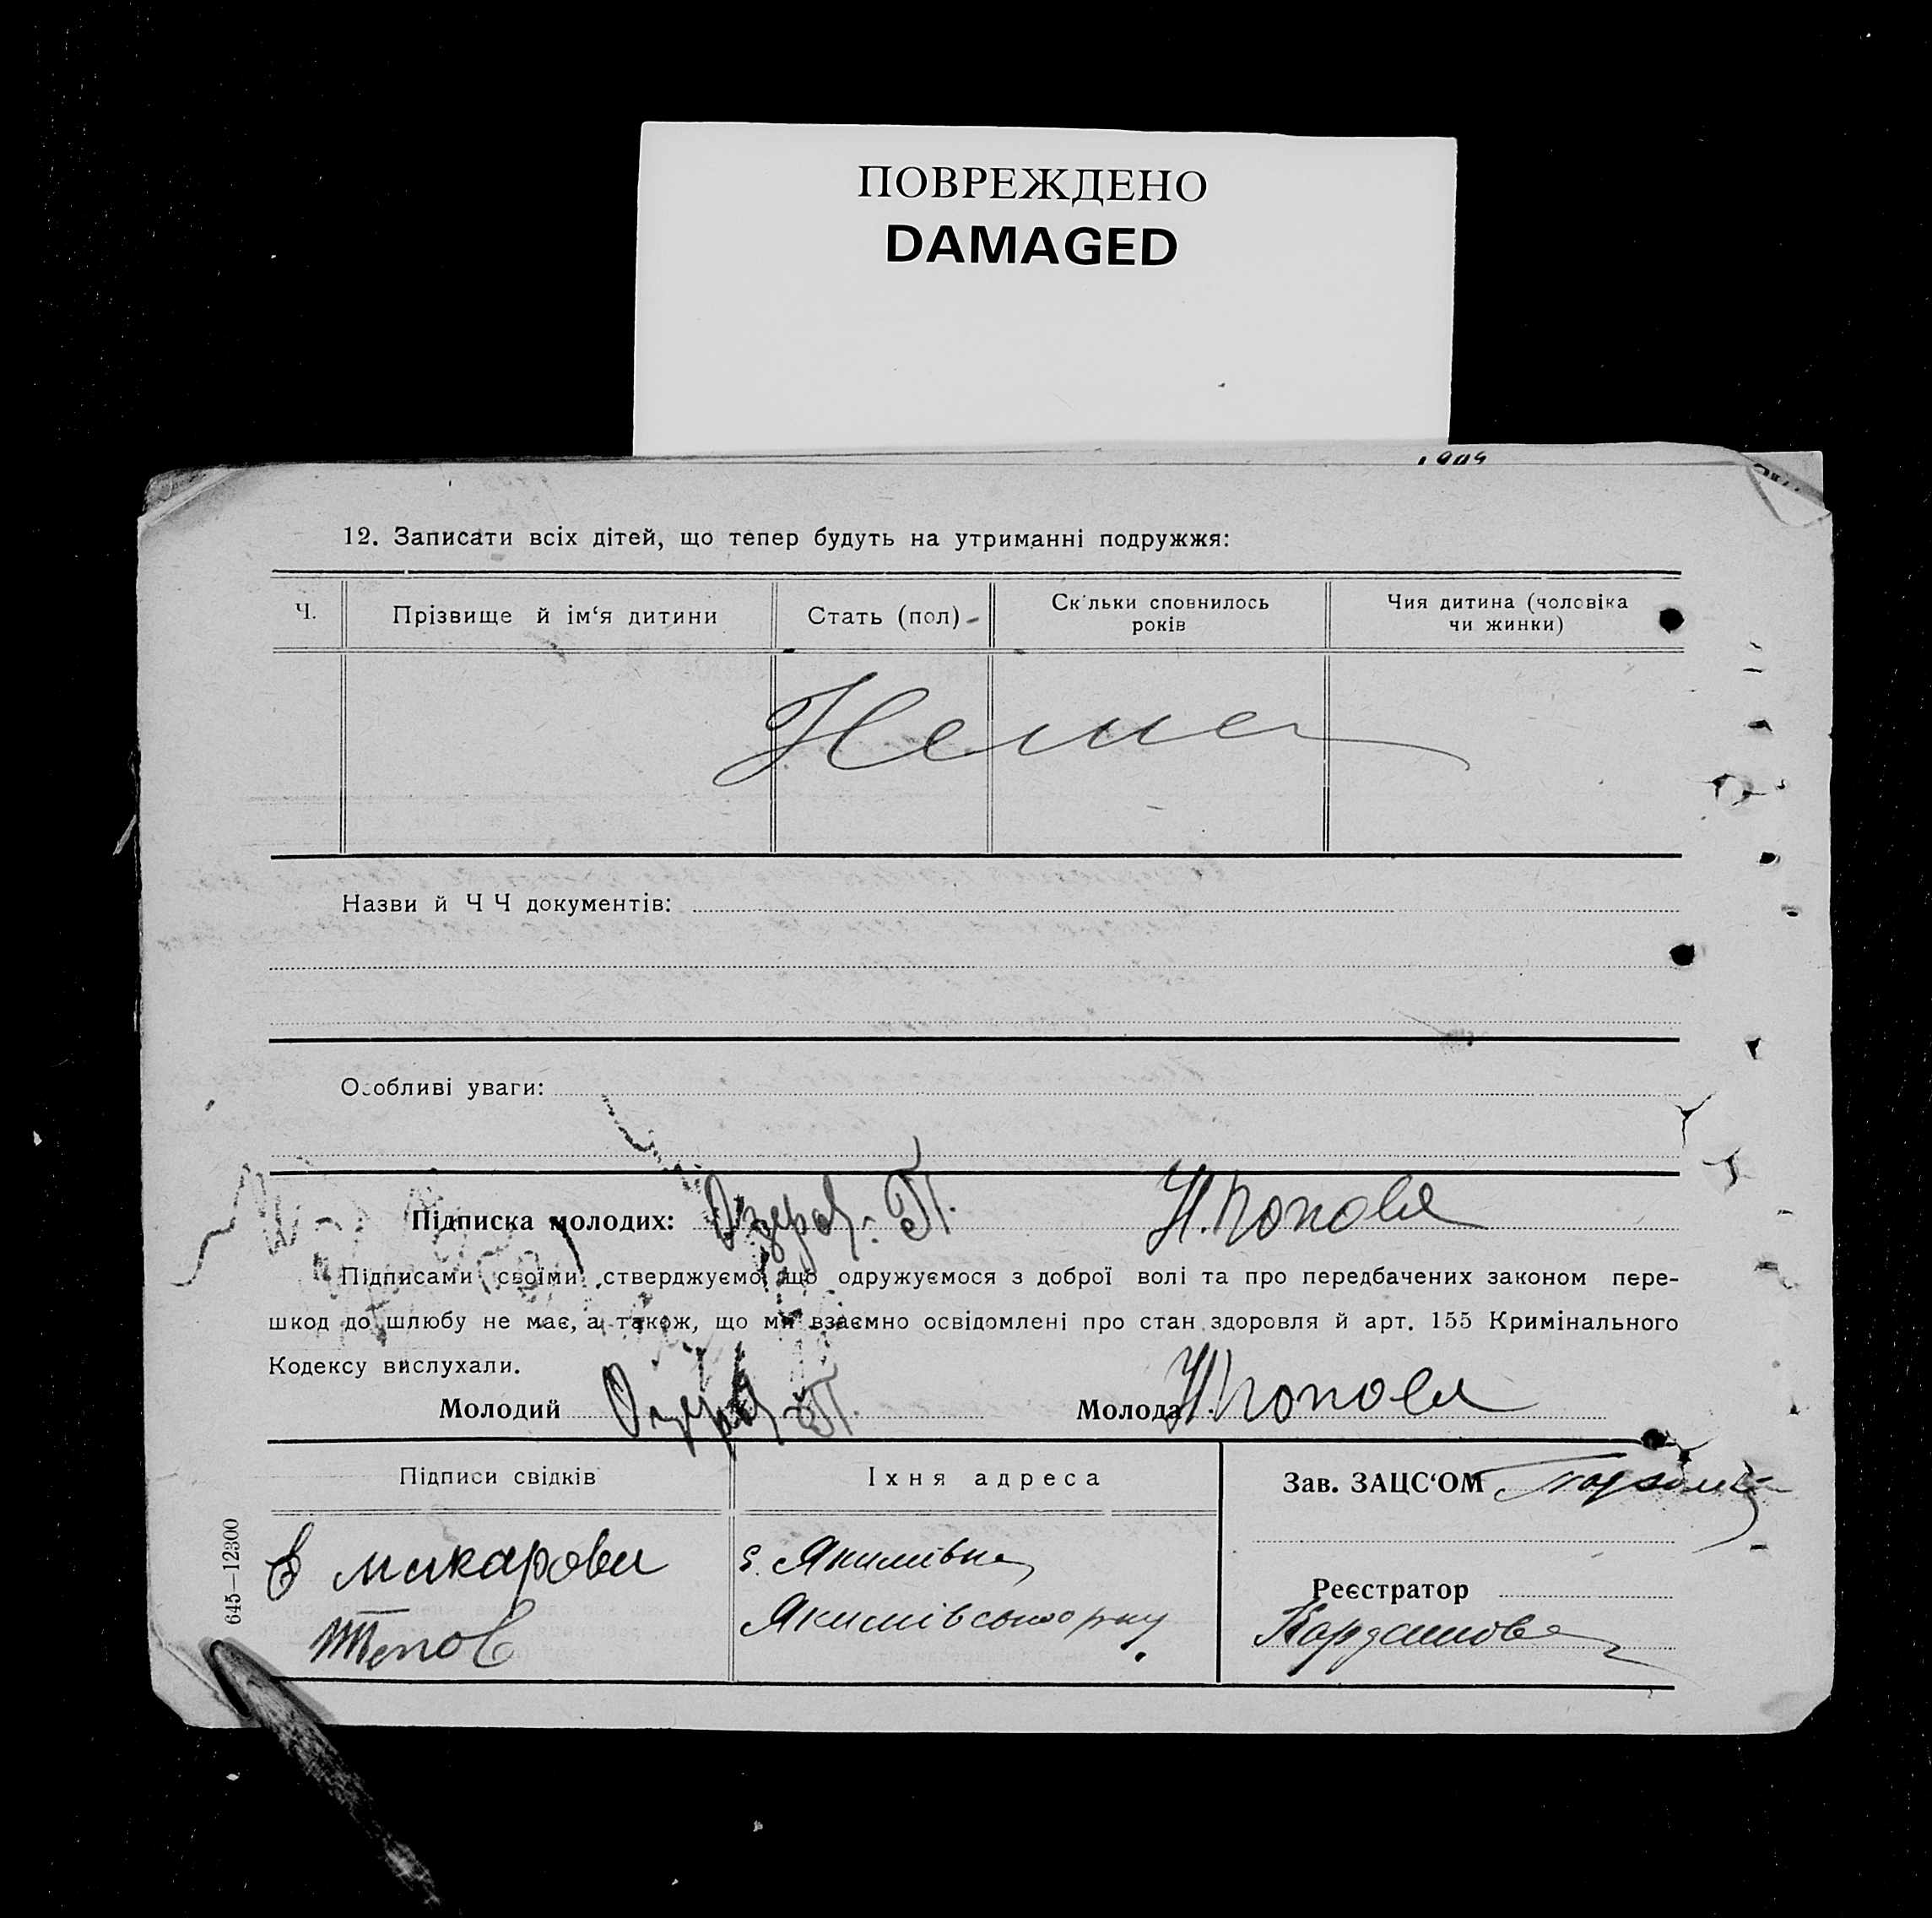 ПОВРЕЖДЕНО
DAMAGED
12. Записати всіх дітей, що тепер будуть на утриманні подружжя:
Ч.
Прізвище й ім‘я дитини
Стать (пол)
Скільки сповнилось
років
Чия дитина (чоловіка
чи жинки)
Нема
Назви й Ч Ч документів:
Особливі уваги:
Підписка молодих: Озеров П. Н. Попова
Підписами своїми стверджуємо, що одружуємося з доброї волі та про передбачених законом пере-
шкод до шлюбу не має, а також, що ми взаємно освідомлені про стан здоровля й арт. 155 Кримінального
Кодексу вислухали.
Молодий Озеров П. Молода Н Попова
Підписи свідків
Їхня адреса
Зав. ЗАЦС‘ОМ
Макарова
с. Якимівка
Якимівського р-ну
Реєстратор
645—12300